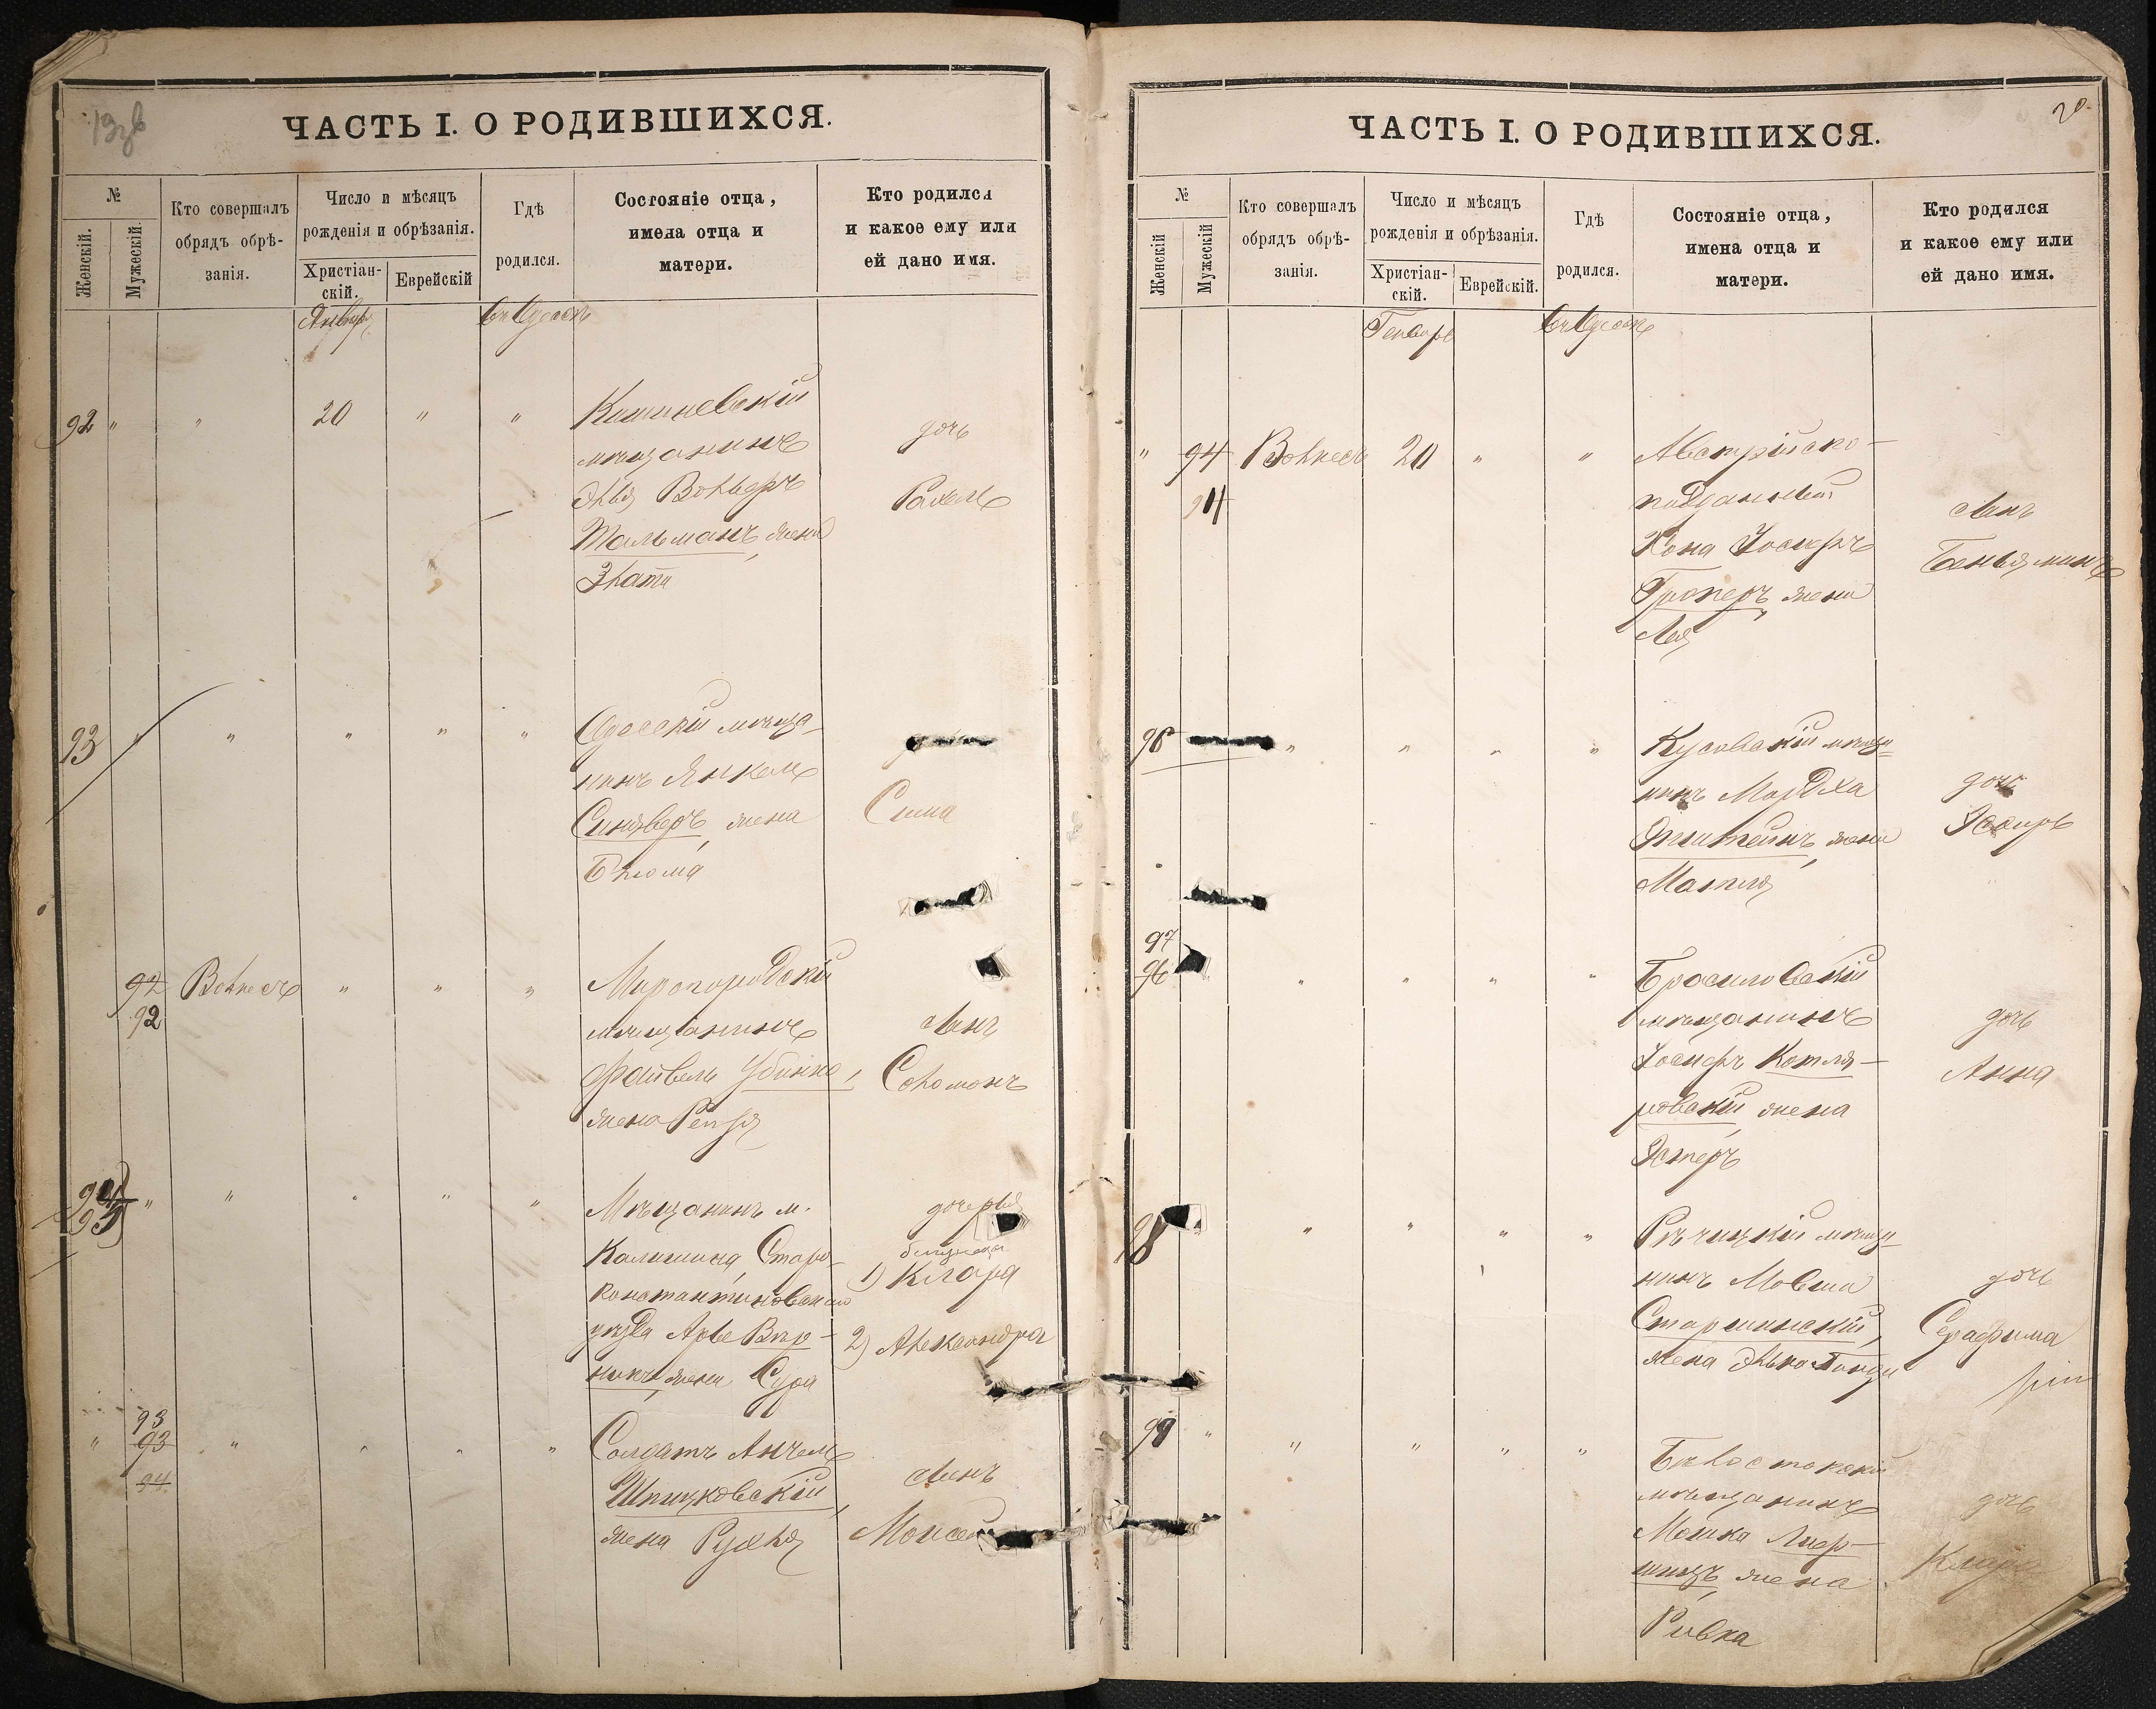 19 зв
ЧАСТЬ I. О РОДИВШИХСЯ.
№
Женскій.
Мужескій
Кто совершалъ
обрядъ обрѣ-
занія.
Число и мѣсяцъ
рожденія и обрѣзанія.
Христіан-
скій.
Еврейскій
Гдѣ
родился.
Состояніе отца,
имена отца и
матери.
Кто родился
и какое ему или
ей дано имя.
Январь
въ Одессѣ
92 " " 20 " "
Кишиневскій
мѣщанинъ
Эля Вольфъ
Тальманъ, жена
Злата
дочь
Рахель
93 " " " " "
Одесскій мѣща-
нинъ Янкель
Синяверъ, жена
Блюма
Сима
92 Волкесъ " " "
92
Миргородскій
мѣщанинъ
Файвель
жена
сынъ
Соломонъ
94 " " " " "
95
Мѣщанинъ м.
Старо-
константиновскаго
уѣзда Арье Вар-
жена Сура
дочерья
близнецы
1) Клара
2) Александра
93
" 93 " " " "
94
Солдатъ Анчель
Шпицковскій,
жена Рухля
сынъ
Моисей
20.
ЧАСТЬ I. О РОДИВШИХСЯ.
№
Женскій
Мужескій
Кто совершалъ
обрядъ обрѣ-
занія.
Число и мѣсяцъ
рожденія и обрѣзанія.
Христіан-
скій.
Еврейскій.
Гдѣ
родился.
Состояніе отца,
имена отца и
матери.
Кто родился
и какое ему или
ей дано имя.
Генварь
въ Одессѣ
" 94 Волкесъ 20 " "
94
Австрійско-
подданный
Іосифъ
жена
Лея
сынъ
Беньяминъ
96 " " " "
мѣща-
нинъ Мордха
жена
Матля
дочь
Эсѳирь
97
96 " " " "
Брасиловскій
мѣщанинъ
Іосифъ Котля-
ровскій жена
Эстеръ
дочь
Анна
98 " " " " "
Рѣчицкій мѣща-
нинъ Мовша
Старшинскій,
жена
дочь
Серафима
99 " " " " "
Бѣлостокскій
мѣщанинъ
Мошка Лиф-
шицъ, жена
Ривка
дочь
Клара